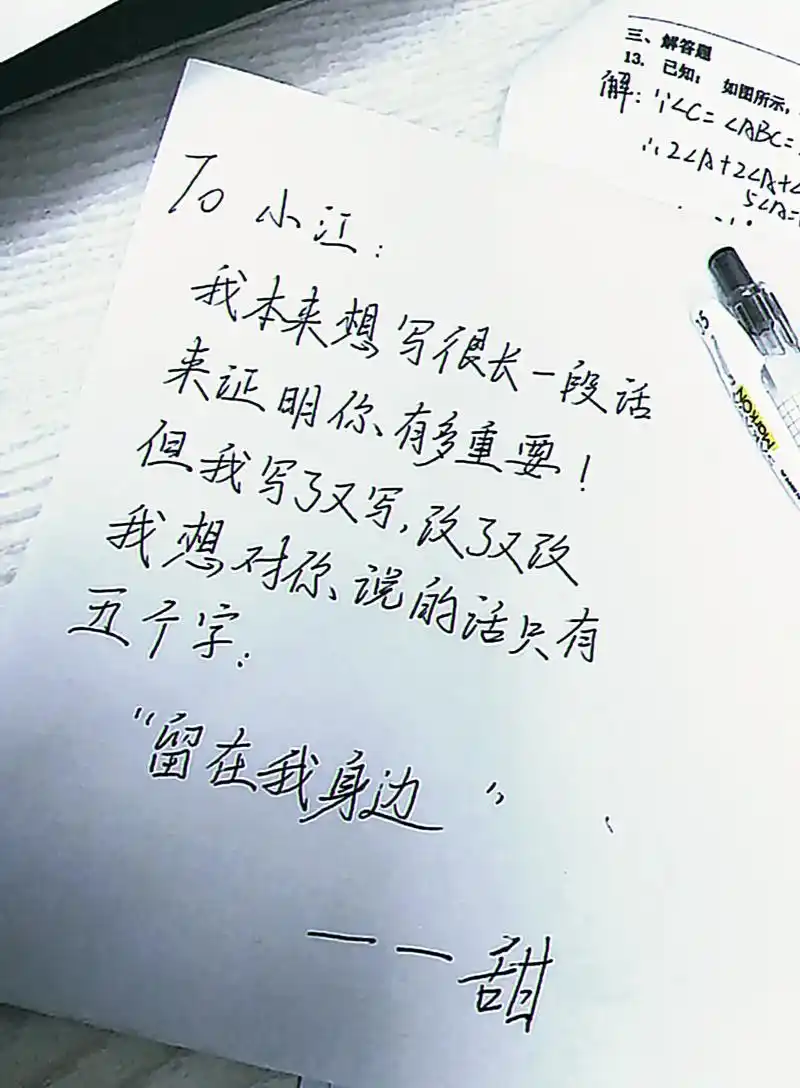 三、解答题
13. 已知： 如图所示,
解: ∵∠C=∠ABC=
∴2∠A+2∠A+∠
5∠A=
To 小江:
我本来想写很长一段话
来证明你有多重要!
但我写了又写,改了又改
我想对你说的话只有
五个字:
“留在我身边”
——甜